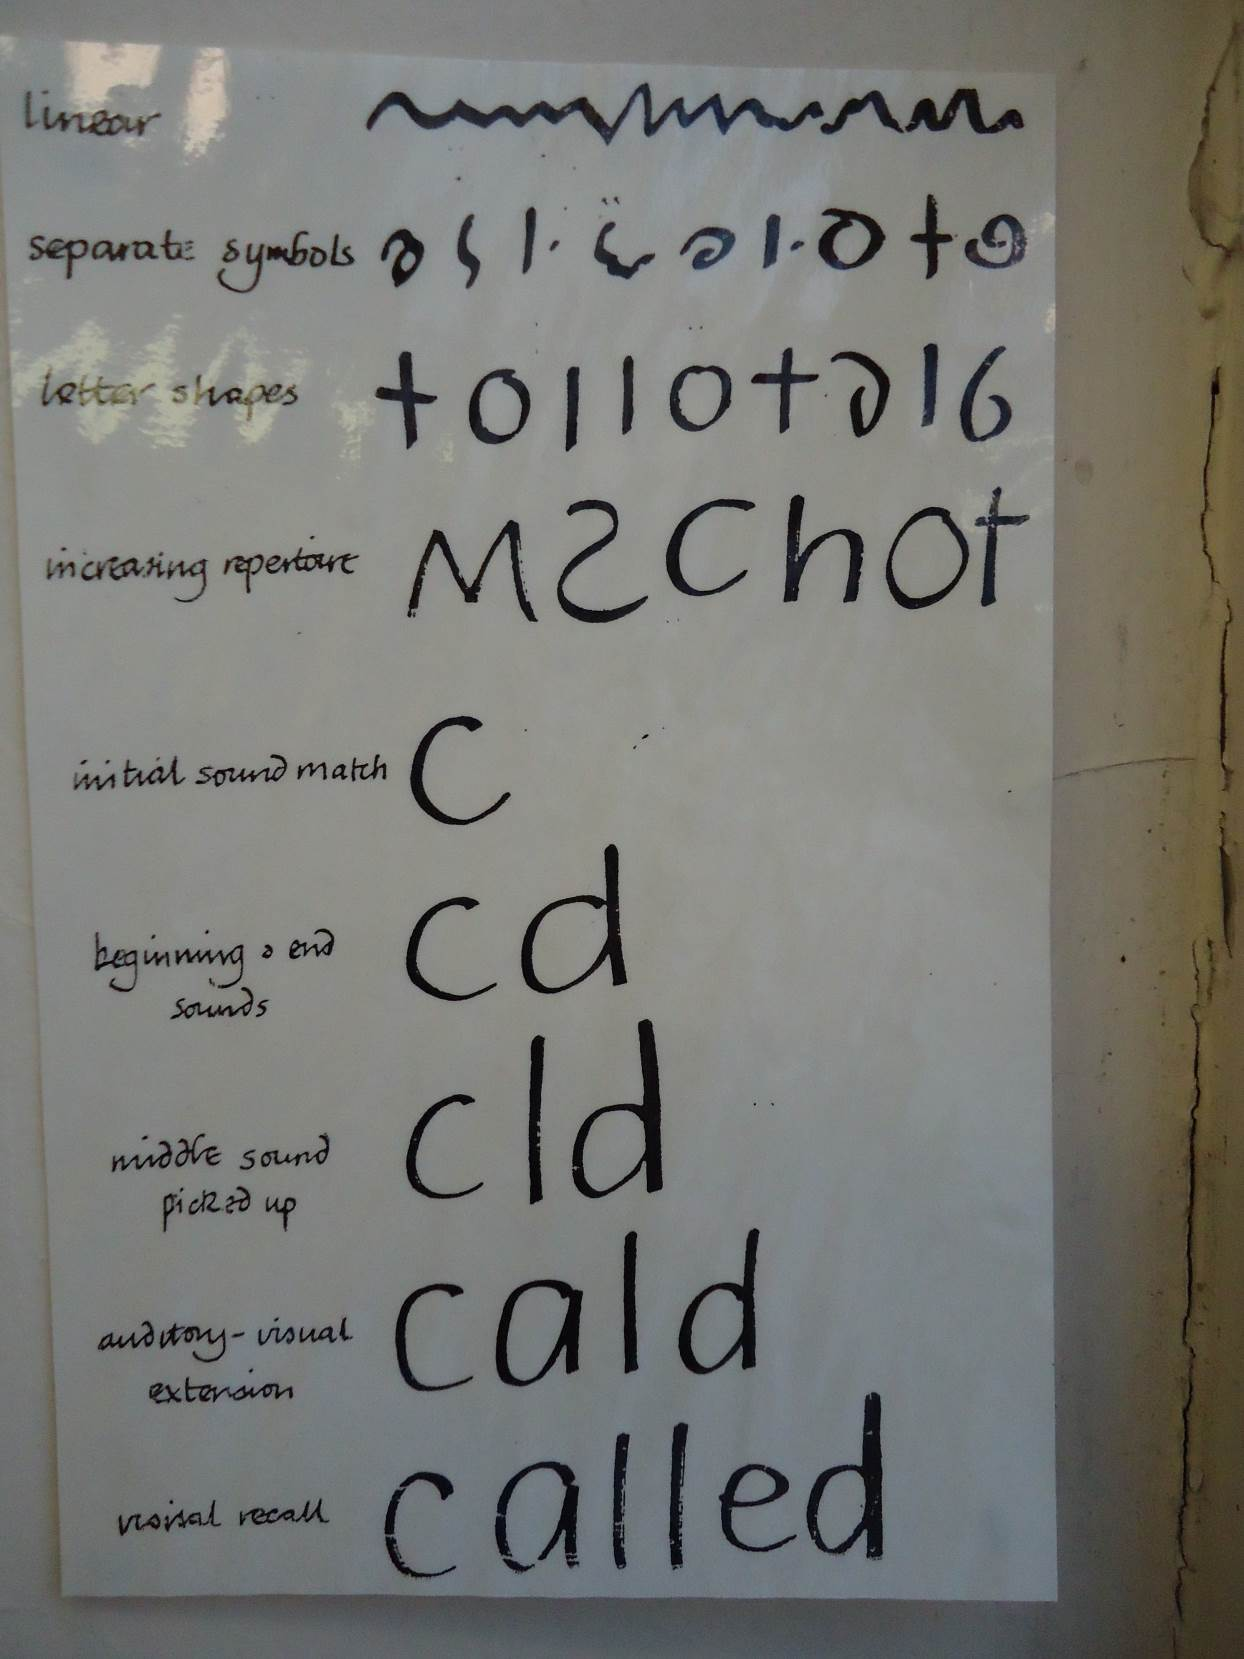 linear
separate symbols
letter shapes t o l l o t a l 6
increasing repertoire M S C h O t
initial sound match c
beginning & end cd
sounds
middle sound cld
picked up
auditory-visual cald
extension
visual recall called